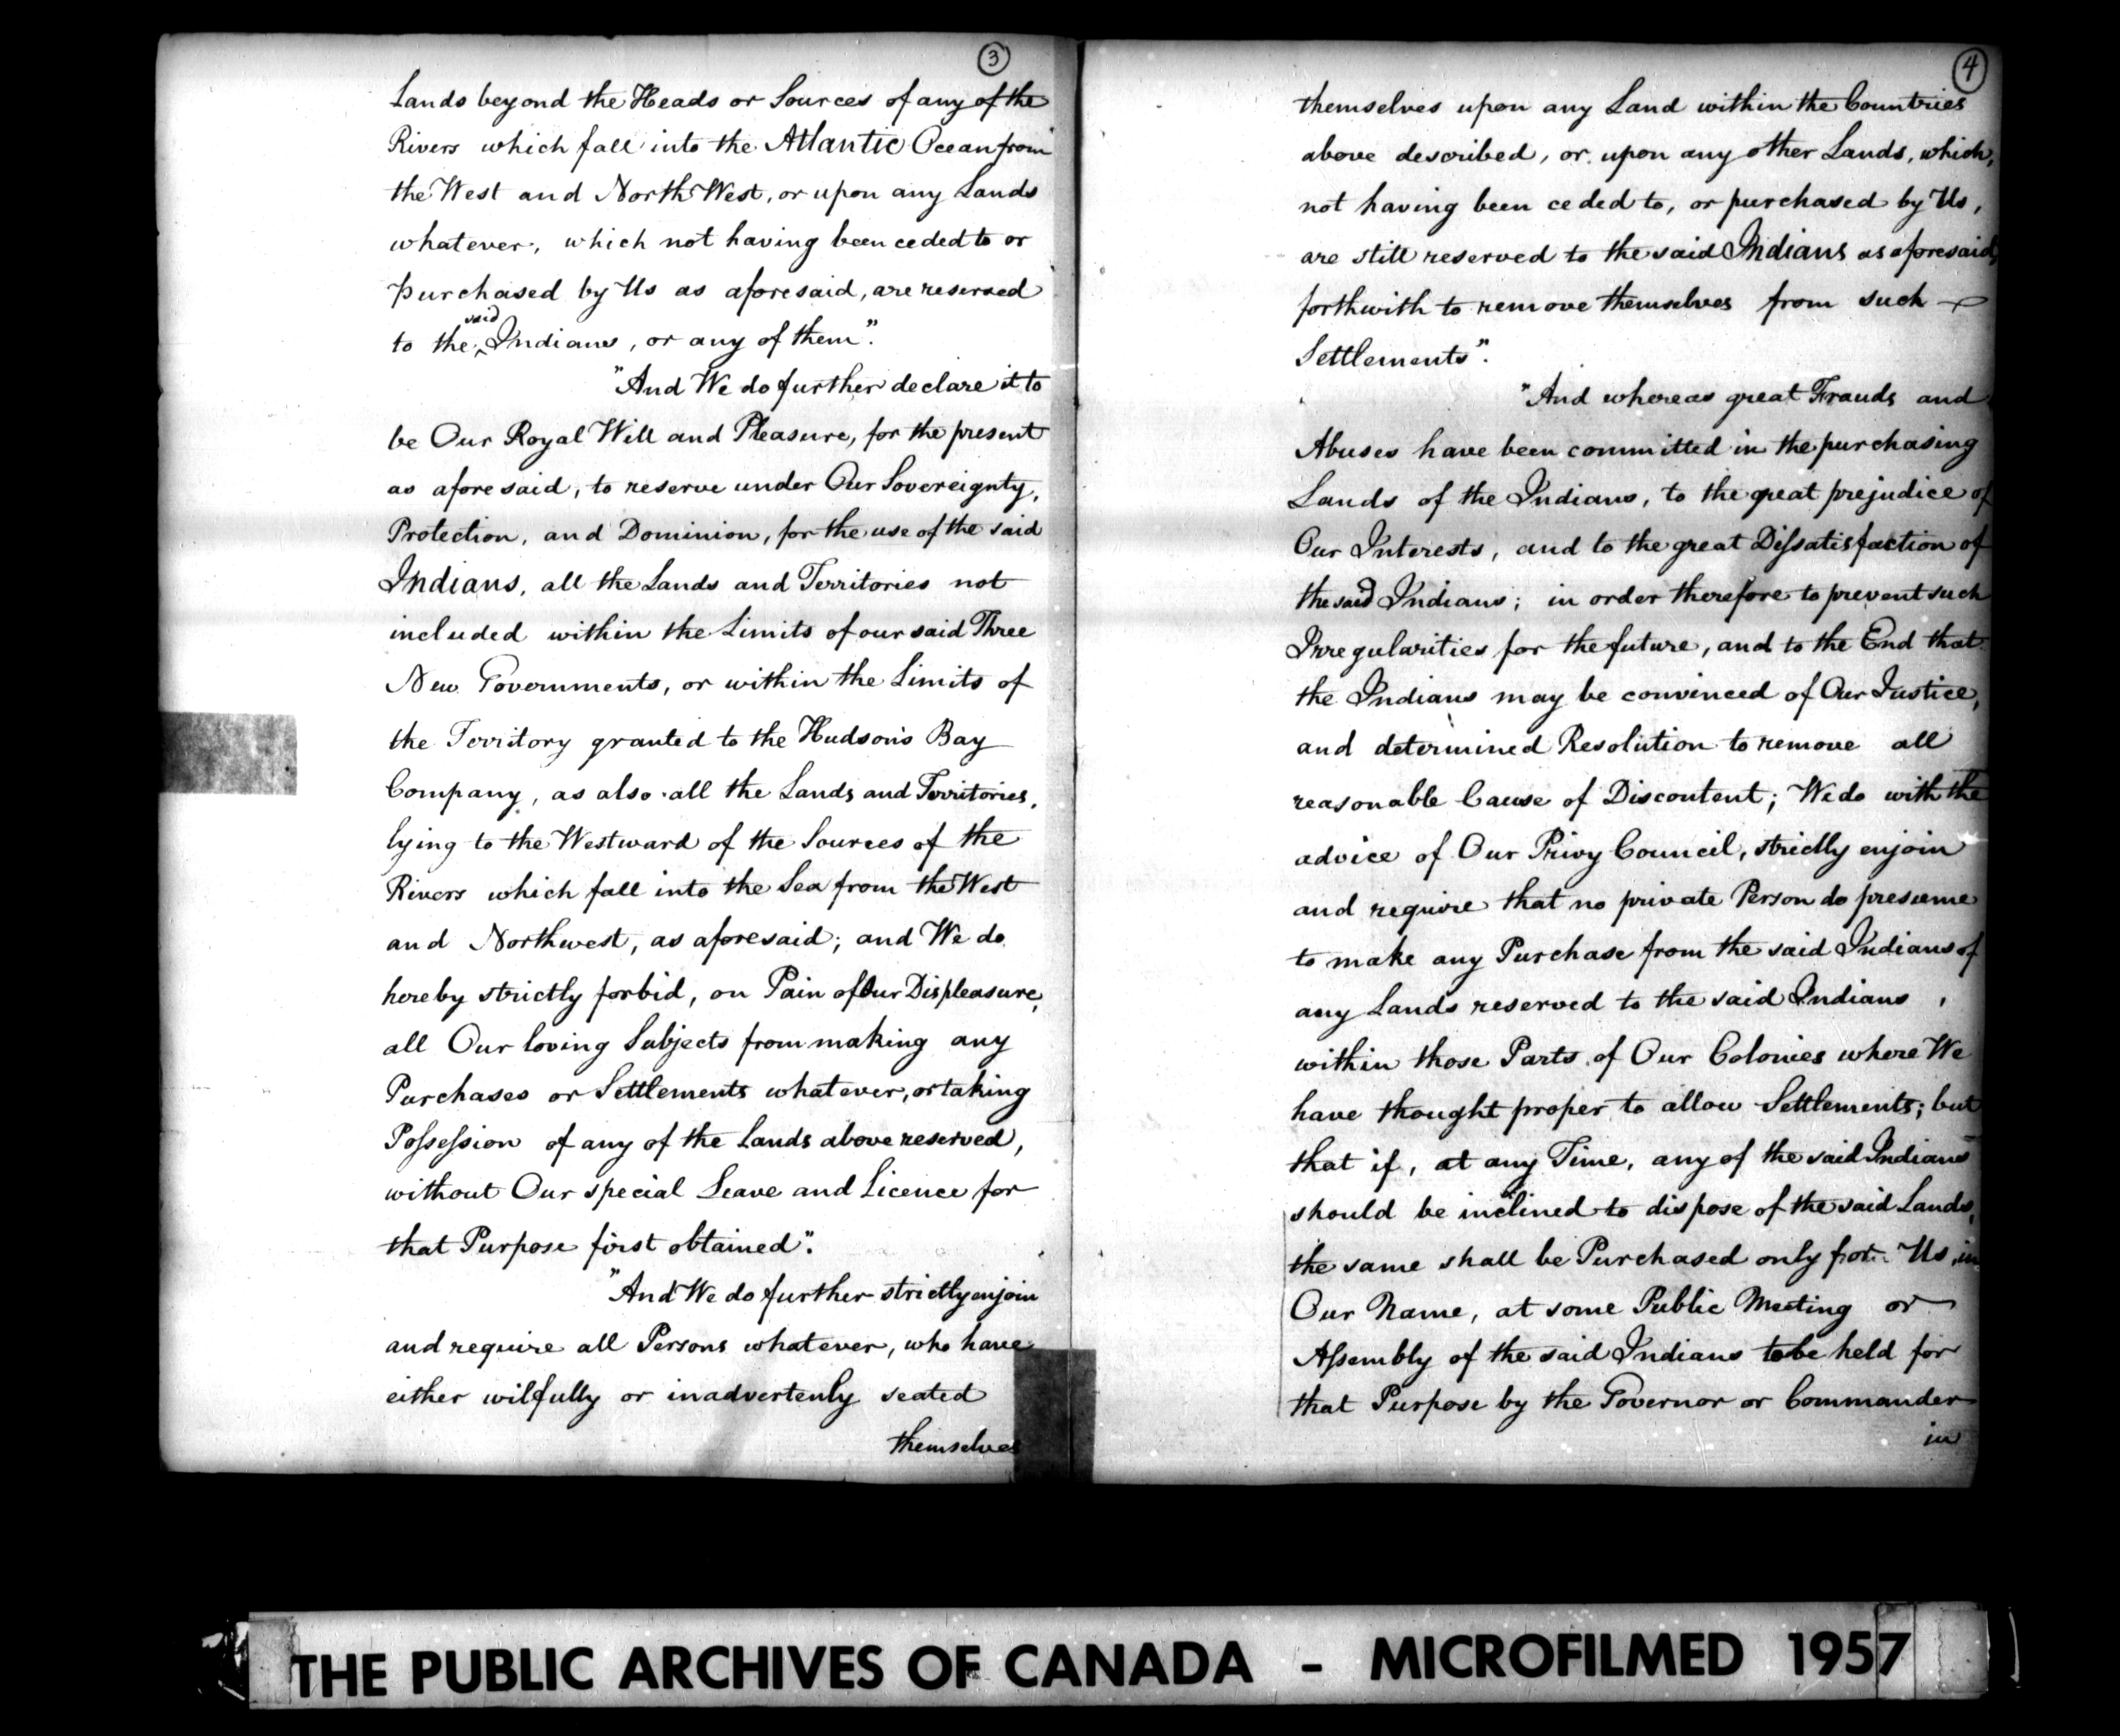 3
Lands beyond the Heads or Sources of any of the
Rivers which fall into the Atlantic Ocean from
the West and North West, or upon any Lands
whatever, which not having been ceded to or
purchased by Us as aforesaid, are reserved
to the said Indians, or any of them".
"And We do further declare it to
be Our Royal Will and Pleasure, for the present
as aforesaid, to reserve under Our Sovereignty,
Protection, and Dominion, for the use of the said
Indians, all the Lands and Territories not
included within the Limits of our said Three
New Governments, or within the Limits of
the Territory granted to the Hudson's Bay
Company, as also all the Lands and Territories,
lying to the Westward of the Sources of the
Rivers which fall into the Sea from the West
and Northwest, as aforesaid; and We do
hereby strictly forbid, on Pain of Our Displeasure,
all Our loving Subjects from making any
Purchases or Settlements whatever, or taking
Possession of any of the Lands above reserved,
without Our special Leave and Licence for
that Purpose first obtained".
"And We do further strictly enjoin
and require all Persons whatever, who have
either wilfully or inadvertenly seated
themselves
4
themselves upon any Land within the Countries
above described, or upon any other Lands, which,
not having been ceded to, or purchased by Us,
are still reserved to the said Indians as aforesaid,
forthwith to remove themselves from such
Settlements".
"And whereas great Frauds and
Abuses have been committed in the purchasing
Lands of the Indians, to the great prejudice of
Our Interests, and to the great Dissatisfaction of
the said Indians; in order therefore to prevent such
Irregularities for the future, and to the End that
the Indians may be convinced of Our Justice,
and determined Resolution to remove all
reasonable Cause of Discontent; We do with the
advice of Our Privy Council, strictly enjoin
and require that no private Person do presume
to make any Purchase from the said Indians of
any Lands reserved to the said Indians,
within those Parts of Our Colonies where We
have thought proper to allow Settlements; but
that if, at any Time, any of the said Indians
should be inclined to dispose of the said Lands,
the same shall be Purchased only for Us, in
Our Name, at some Public Meeting or
Assembly of the said Indians to be held for
that Purpose by the Governor or Commander
in
THE PUBLIC ARCHIVES OF CANADA - MICROFILMED 1957